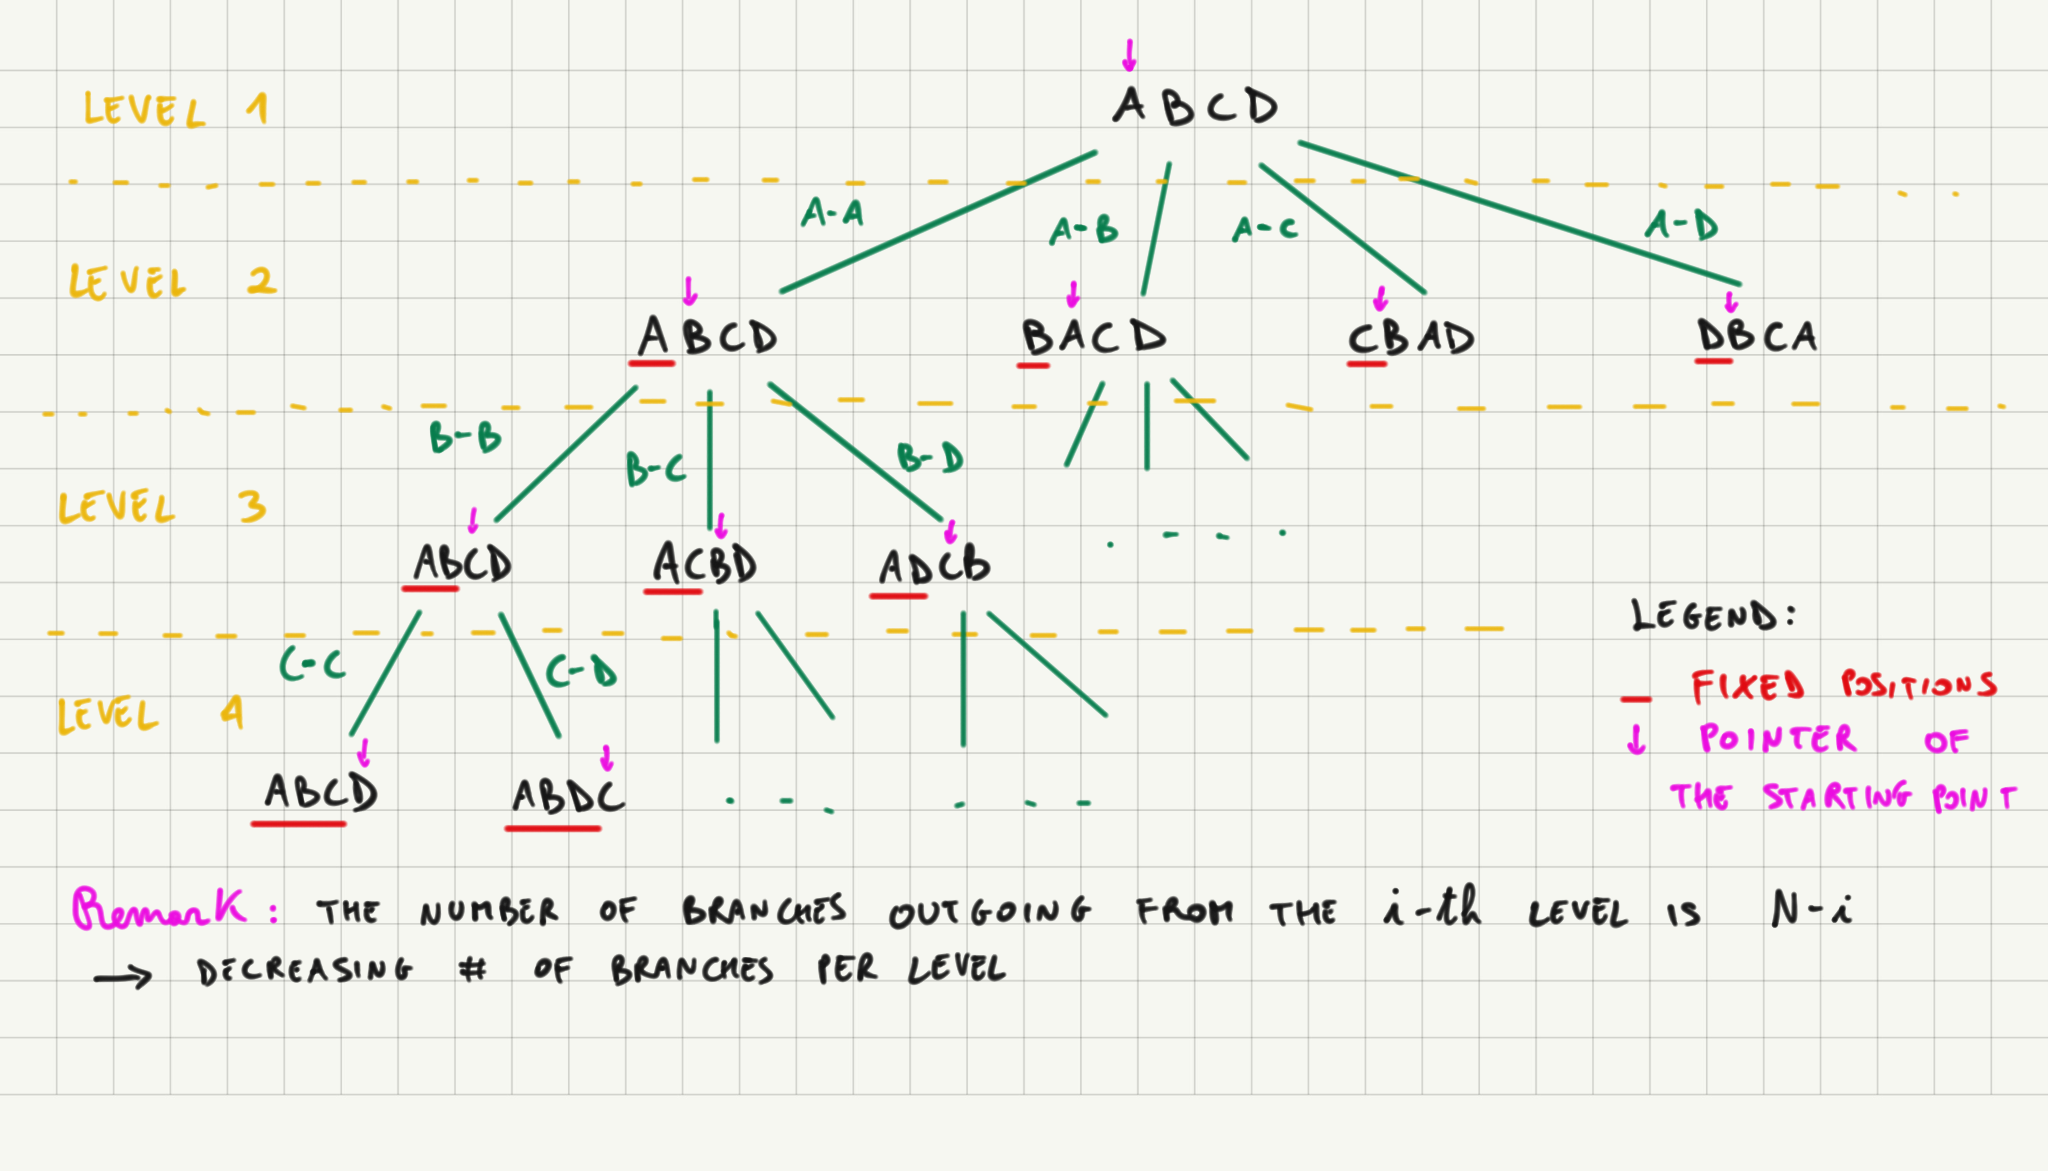 LEVEL 1
A B C D
A-A
A-B
A-C
A-D
LEVEL 2
ABCD
BACD
CBAD
DBCA
B-B
B-C
B-D
LEVEL 3
ABCD
ACBD
ADCB
C-C
C-D
LEVEL 4
ABCD
ABDC
LEGEND:
— FIXED POSITIONS
↓ POINTER OF
THE STARTING POINT
Remark: THE NUMBER OF BRANCHES OUTGOING FROM THE i-th LEVEL IS N-i
→ DECREASING # OF BRANCHES PER LEVEL